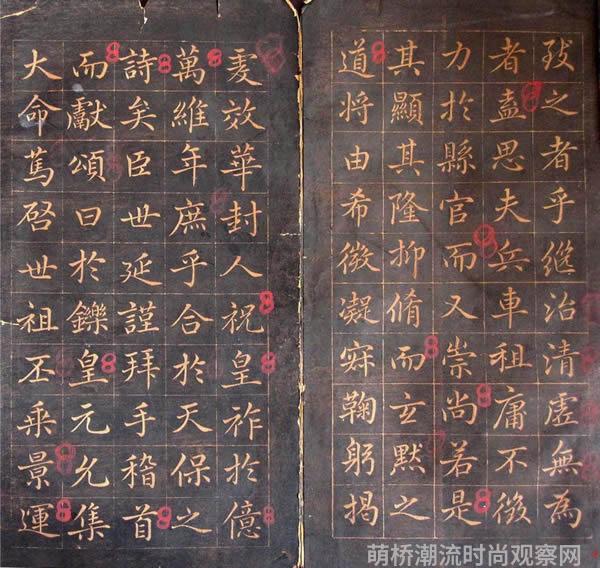 致之者乎継治清虛無為
者盍思夫兵車租庸不徴
力於縣官而又崇尚若是
其顯其隆抑脩而玄默之
道将由希微凝寂鞠躬揭
虔效華封人祝皇祚於億
萬維年庶乎合於天保之
詩矣臣世延謹拜手稽首
而獻頌曰於鑠皇元允集
大命篤啓世祖丕乘景運
萌桥潮流时尚观察网